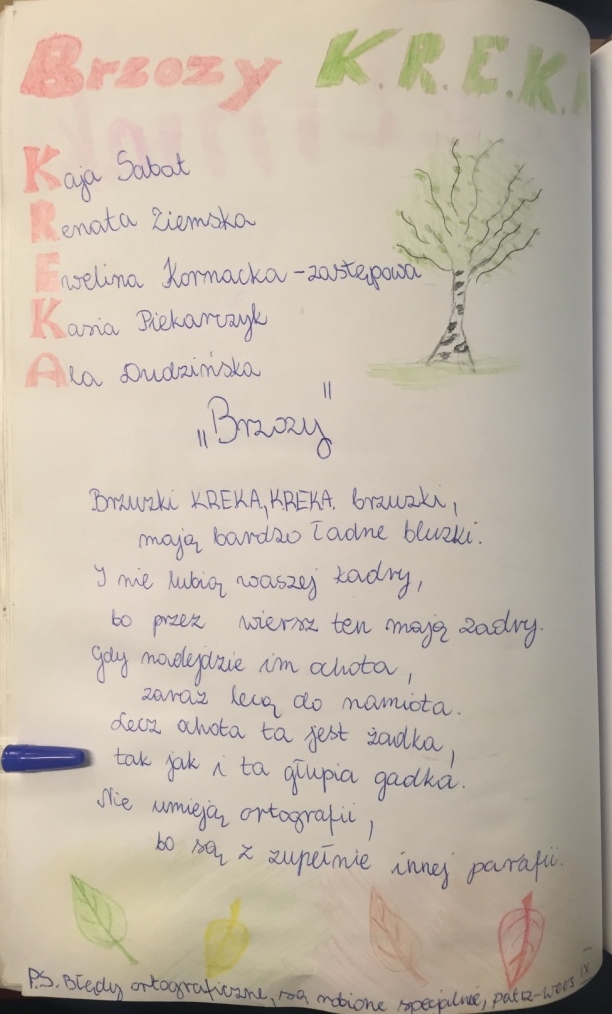 Brzozy K.R.E.K.
Kaja Sabat
Renata Ziemska
Ewelina Kormacka - zastępowa
Kasia Piekarczyk
Ala Dudzińska
„Brzozy"
Brzuzki KREKA, KREKA brzuzki,
mają bardzo ładne bluzki.
I nie lubią waszej kadry,
bo przez wiersz ten mają zadry.
Gdy nadejdzie im ohota,
zaraz lecą do namiota.
Lecz ohota ta jest żadka,
tak jak i ta głupia gadka.
Nie umieją ortografii,
bo są z zupełnie innej parafii.
P.S. Błędy ortograficzne, są robione specjalnie, patrz-wers IX